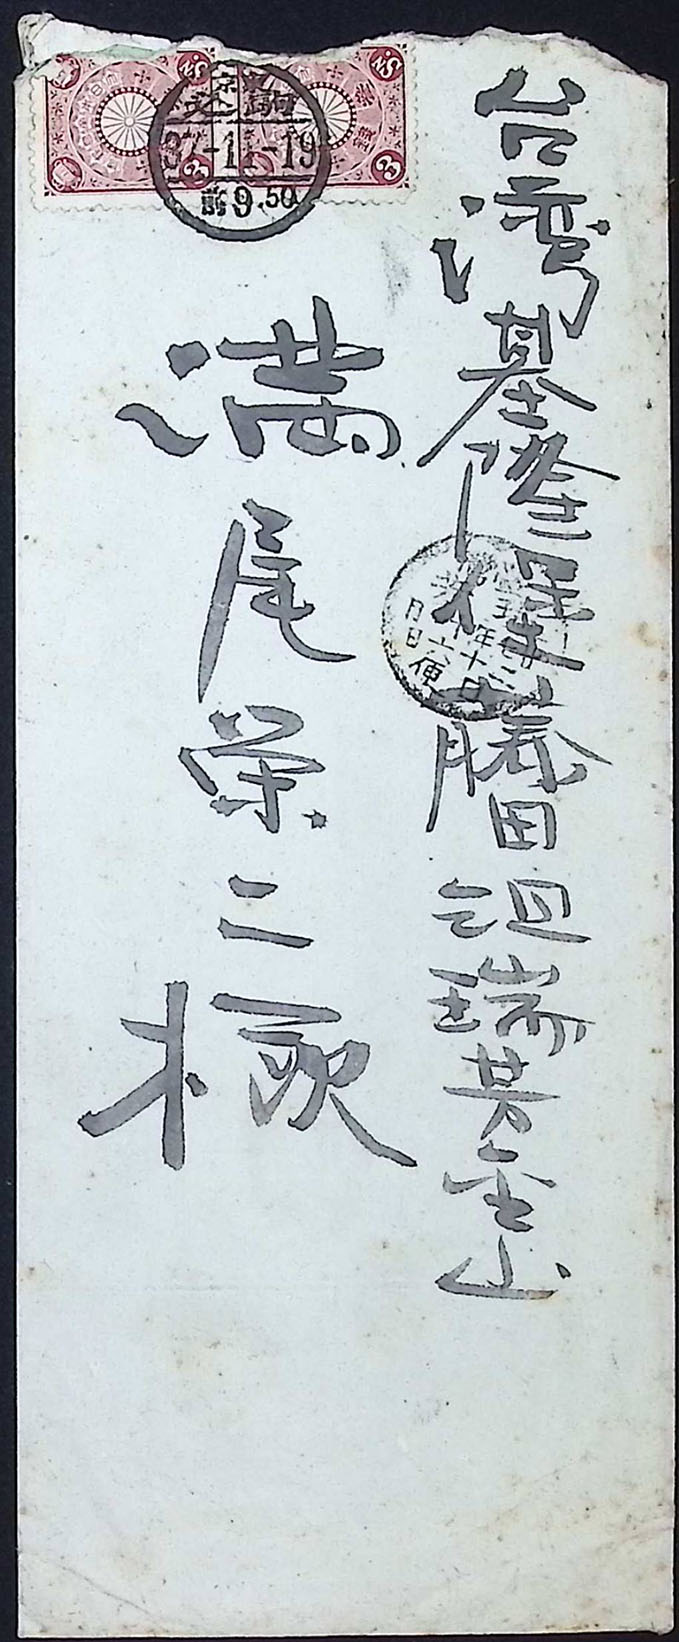 台湾基隆堡藤田組瑞芳金山
満尾栄二様
37-11-19
前9.50